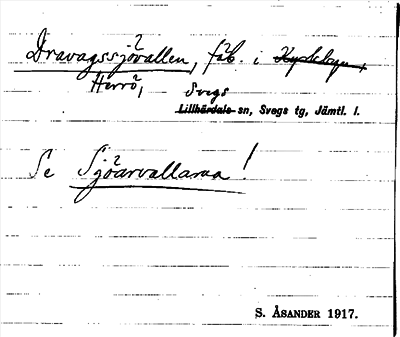 Dravagssjövallen, fäb. i Kyrkebyn,
Herrö, Svegs
Lillhärdals sn, Svegs tg, Jämtl. l.
Se Sjöarvallarna!
S. ÅSANDER 1917.